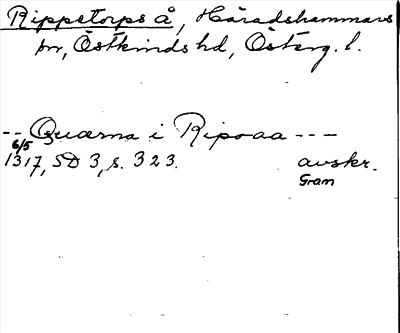 Rippetorps å, Häradshammars
sn, Östkinds hd, Österg. l.
-- Quærna i Ripoaa ---
6/5
1317, SD 3, s. 323. avskr.
Gran